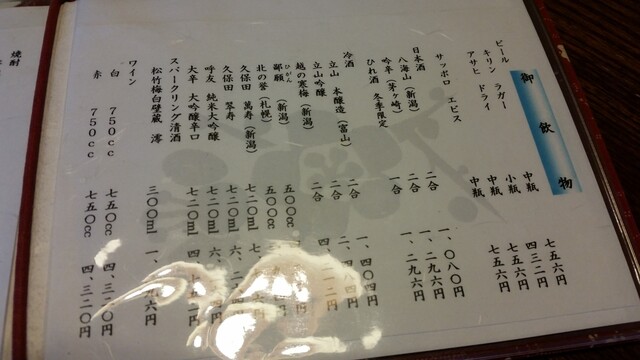 御飲物
ビール
キリン ラガー 中瓶 七五六円
小瓶 四三二円
アサヒ ドライ 中瓶 七五六円
サッポロ エビス 中瓶 七五六円
日本酒
八海山(新潟) 二合 一、〇八〇円
吟卒(茅ヶ崎) 二合 一、二九六円
ひれ酒 冬季限定 一合 一、二九六円
冷酒
立山 本醸造(富山) 二合 一、四〇四円
立山吟醸 二合 二、
越の寒梅(新潟) 二合 四、
鄙願(新潟) 五〇〇cc
ひがん
北の誉(札幌) 五〇〇cc
久保田 萬寿(新潟) 七二〇ml 七、
久保田 翠寿 七二〇ml 六、
呼友 純米大吟醸 七二〇ml 六、
大辛 大吟醸辛口 七二〇ml 四、
スパークリング清酒
松竹梅白壁蔵 澪 三〇〇ml 一、
ワイン
白 750cc 七五〇cc 四、三二〇円
赤 750cc 七五〇cc 四、三二〇円
焼酎